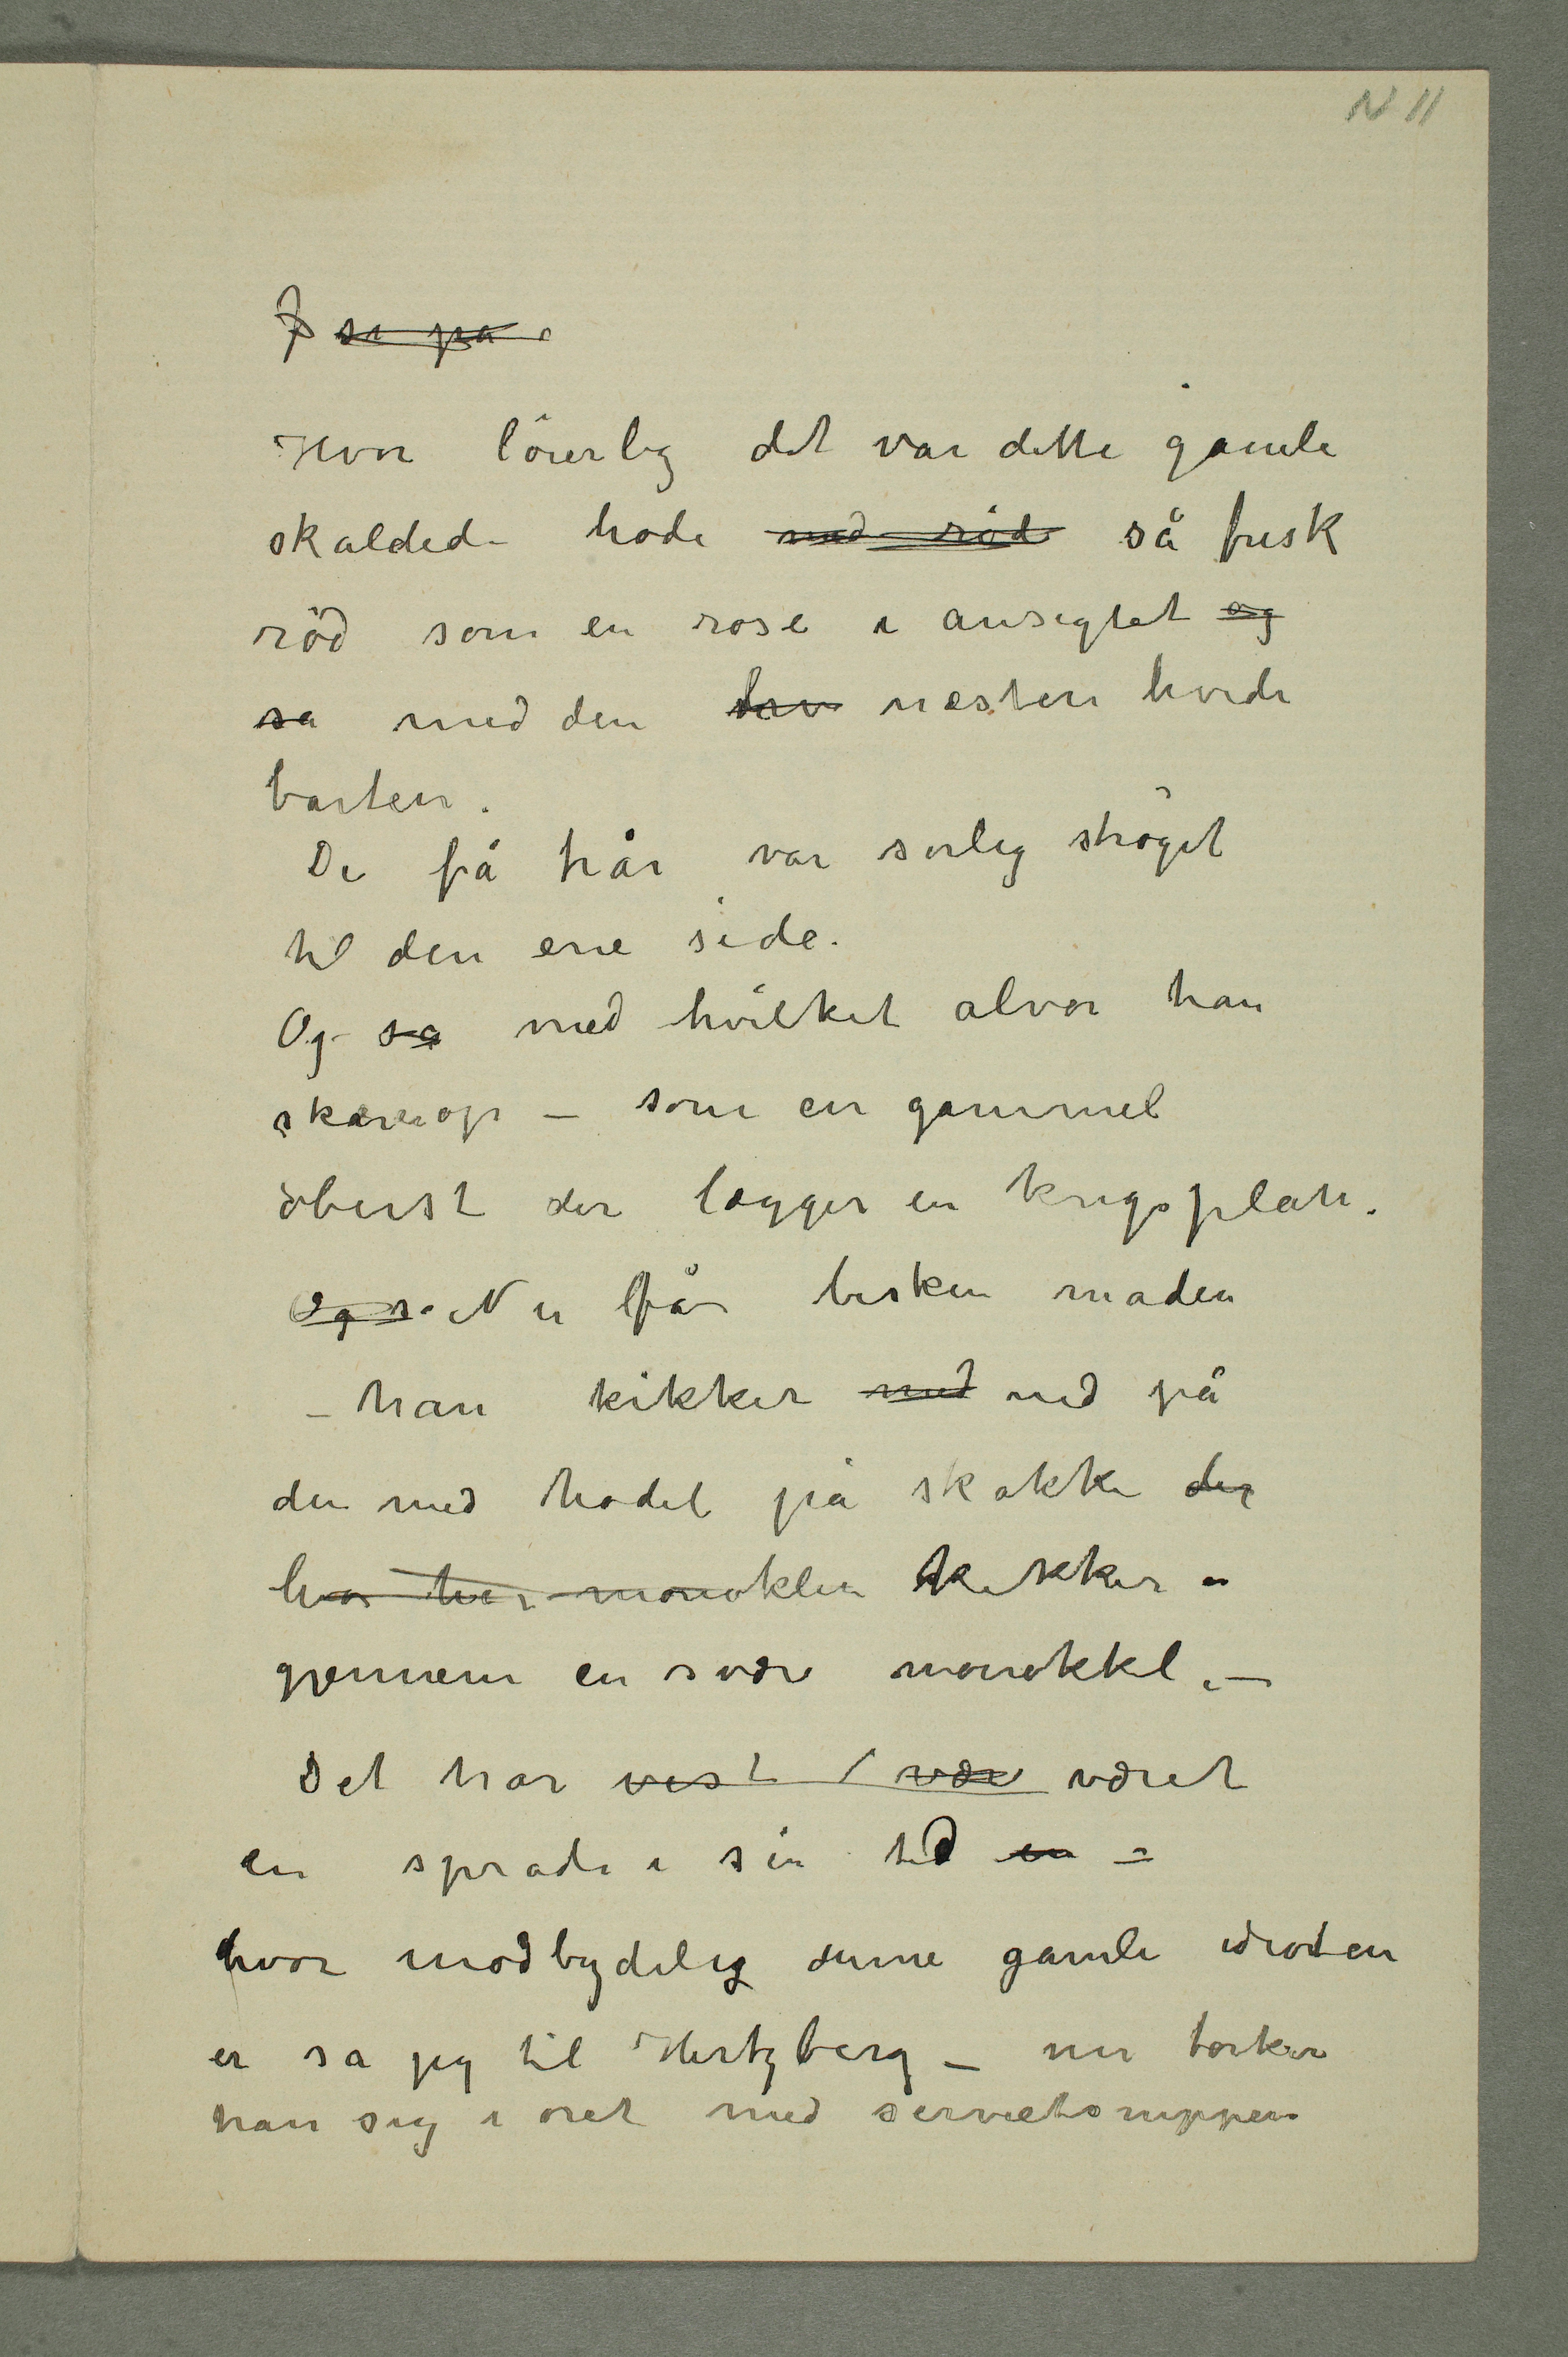 N 11
J se på
Hvor löierlig det var dette gamle
skalded hode med röd så frisk
röd som en rose i ansigtet og
sa med den hv næsten hvide
barten.
De få hår var sirlig ströget
til den ene side.
Og sa med hvilket alvor han
skærer op – som en gammel
oberst der lægger en krigsplan.
Og s Nu får bisken maden
– han kikker med ned på
den med hodet på skakke der
hvor han monoklen kikker
gjennem en svær monokkel. –
Det har vist / vær været
en sprade i sin tid en –
hvor modbydelig denne gamle idioten
er sa jeg til Hertzberg – nu tørker
han sig i øret med servietsnippen